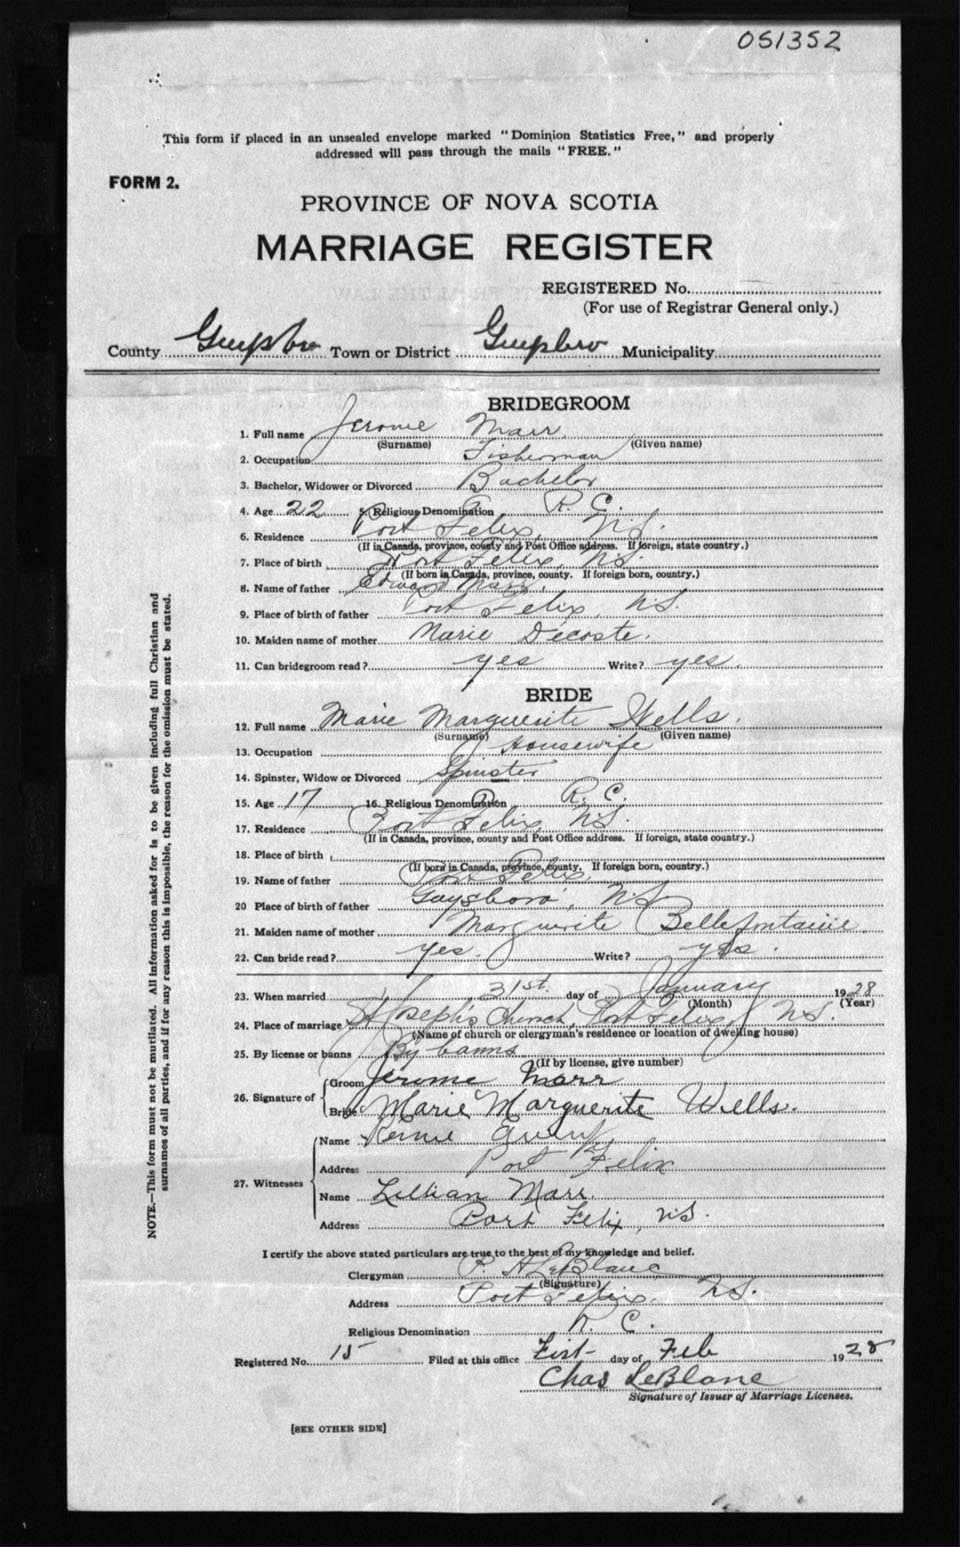 051352
This form if placed in an unsealed envelope marked "Dominion Statistics Free," and properly
addressed will pass through the mails "FREE."
FORM 2.
PROVINCE OF NOVA SCOTIA
MARRIAGE REGISTER
REGISTERED No.
(For use of Registrar General only.)
County Guysboro Town or District Guysboro Municipality
BRIDEGROOM
1. Full name Jerome Marr
(Surname) (Given name)
2. Occupation Fisherman
3. Bachelor, Widower or Divorced Bachelor
4. Age 22 5. Religious Denomination R. C.
6. Residence Port Felix, N.S.
(If in Canada, province, county and Post Office address. If foreign, state country.)
7. Place of birth Port Felix, N.S.
(If born in Canada, province, county. If foreign born, country.)
8. Name of father Edward Marr
9. Place of birth of father Port Felix, N.S.
10. Maiden name of mother Marie Decoste.
11. Can bridegroom read? yes Write? yes.
BRIDE
12. Full name Marie Marguerite Wells.
(Surname) (Given name)
13. Occupation Housewife
14. Spinster, Widow or Divorced Spinster
15. Age 17 16. Religious Denomination R. C.
17. Residence Port Felix, N.S.
(If in Canada, province, county and Post Office address. If foreign, state country.)
18. Place of birth
(If born in Canada, province, county. If foreign born, country.)
19. Name of father Port Felix
20 Place of birth of father Guysboro, N.S.
21. Maiden name of mother Marguerite Bellefontaine.
22. Can bride read? yes. Write? yes.
23. When married 31st. day of January 1928
(Month) (Year)
24. Place of marriage St Joseph's Church, Port Felix, N.S.
(Name of church or clergyman's residence or location of dwelling house)
25. By license or banns By banns
(If by license, give number)
26. Signature of Groom Jerome Marr
Bride Marie Marguerite Wells.
27. Witnesses Name
Address Port Felix
Name Lillian Marr.
Address Port Felix, N.S.
I certify the above stated particulars are true to the best of my knowledge and belief.
Clergyman P. A LeBlanc
(Signature)
Address Port Felix, N.S.
Religious Denomination R. C.
Registered No. 15 Filed at this office First day of Feb 1928
Chas LeBlanc
Signature of Issuer of Marriage Licenses.
[SEE OTHER SIDE]
NOTE.—This form must not be mutilated. All information asked for is to be given including full Christian and
surnames of all parties, and if for any reason this is impossible, the reason for the omission must be stated.